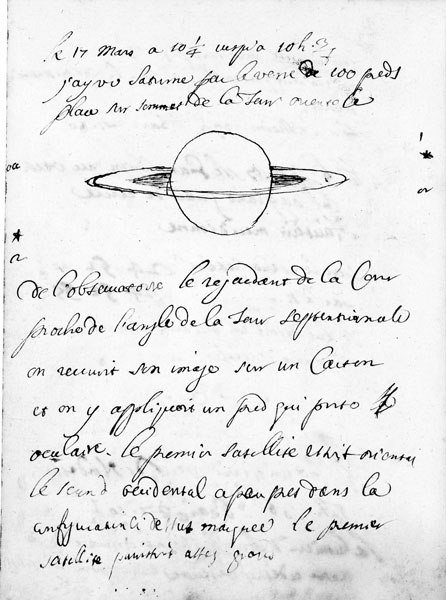 le 17 Mars a 10¼ iusqu'a 10h.¾
j'ay vu Saturne par le verre de 100 pieds
placé sur sommet de la Tour orientale
oc
or
de l'observatoire le regardant de la Cour
proche de l'angle de la Tour Septentrionale
on recevoit son image sur un Carton
et on y appliquoit un pied qui porte
oculaire. le premier Satellite estoit oriental
le second occidental a peu pres dans la
configuration marquée le premier
satellite paroissoit assez grand